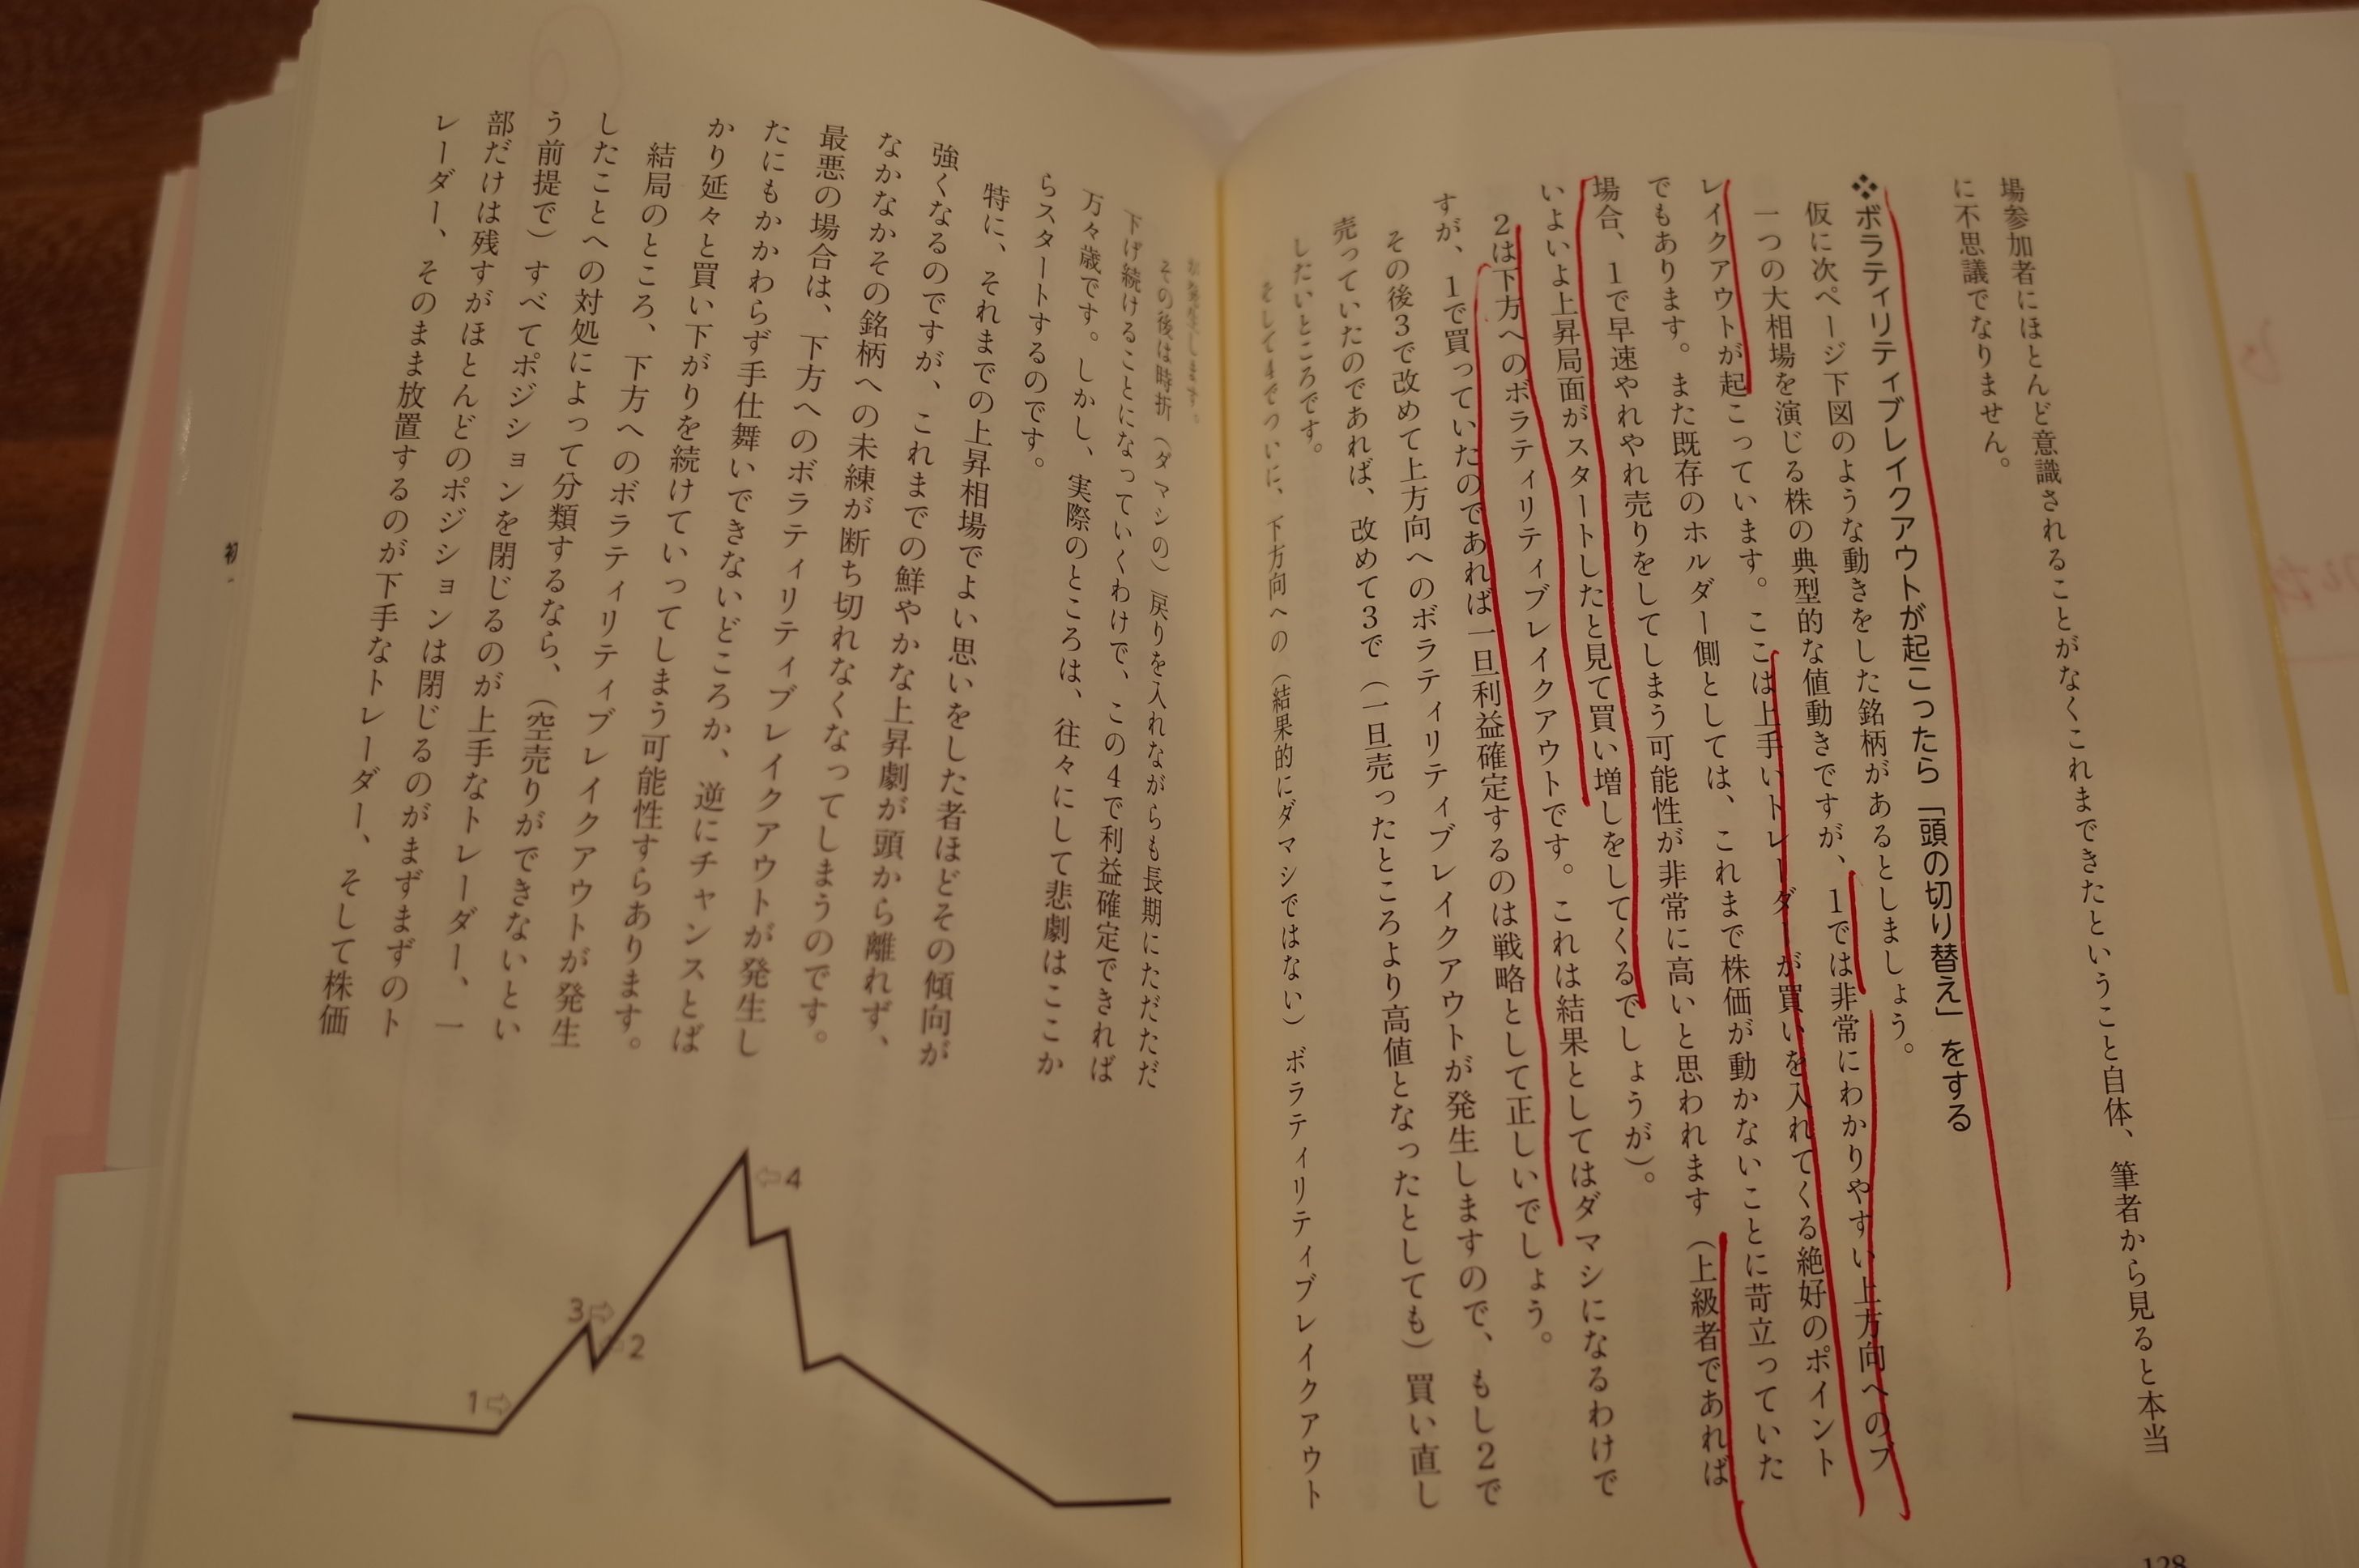 場参加者にほとんど意識されることがなくこれまできたということ自体、筆者から見ると本当
に不思議でなりません。
❖ボラティリティブレイクアウトが起こったら「頭の切り替え」をする
仮に次ページ下図のような動きをした銘柄があるとしましょう。
一つの大相場を演じる株の典型的な値動きですが、1では非常にわかりやすい上方向へのブ
レイクアウトが起こっています。ここは上手いトレーダーが買いを入れてくる絶好のポイント
でもあります。また既存のホルダー側としては、これまで株価が動かないことに苛立っていた
場合、1で早速やれやれ売りをしてしまう可能性が非常に高いと思われます（上級者であれば
いよいよ上昇局面がスタートしたと見て買い増しをしてくるでしょうが）。
2は下方へのボラティリティブレイクアウトです。これは結果としてはダマシになるわけで
すが、1で買っていたのであれば一旦利益確定するのは戦略として正しいでしょう。
その後3で改めて上方向へのボラティリティブレイクアウトが発生しますので、もし2で
売っていたのであれば、改めて3で（一旦売ったところより高値となったとしても）買い直し
したいところです。
そして4でついに、下方向への（結果的にダマシではない）ボラティリティブレイクアウト
その後は時折（ダマシの）戻りを入れながらも長期にただただ
下げ続けることになっていくわけで、この4で利益確定できれば
万々歳です。しかし、実際のところは、往々にして悲劇はここか
らスタートするのです。
特に、それまでの上昇相場でよい思いをした者ほどその傾向が
強くなるのですが、これまでの鮮やかな上昇劇が頭から離れず、
なかなかその銘柄への未練が断ち切れなくなってしまうのです。
最悪の場合は、下方へのボラティリティブレイクアウトが発生し
たにもかかわらず手仕舞いできないどころか、逆にチャンスとば
かり延々と買い下がりを続けていってしまう可能性すらあります。
結局のところ、下方へのボラティリティブレイクアウトが発生
したことへの対処によって分類するなら、（空売りができないとい
う前提で）すべてポジションを閉じるのが上手なトレーダー、一
部だけは残すがほとんどのポジションは閉じるのがまずまずのト
レーダー、そのまま放置するのが下手なトレーダー、そして株価
1⇨
3⇨
⇦2
⇦4
128